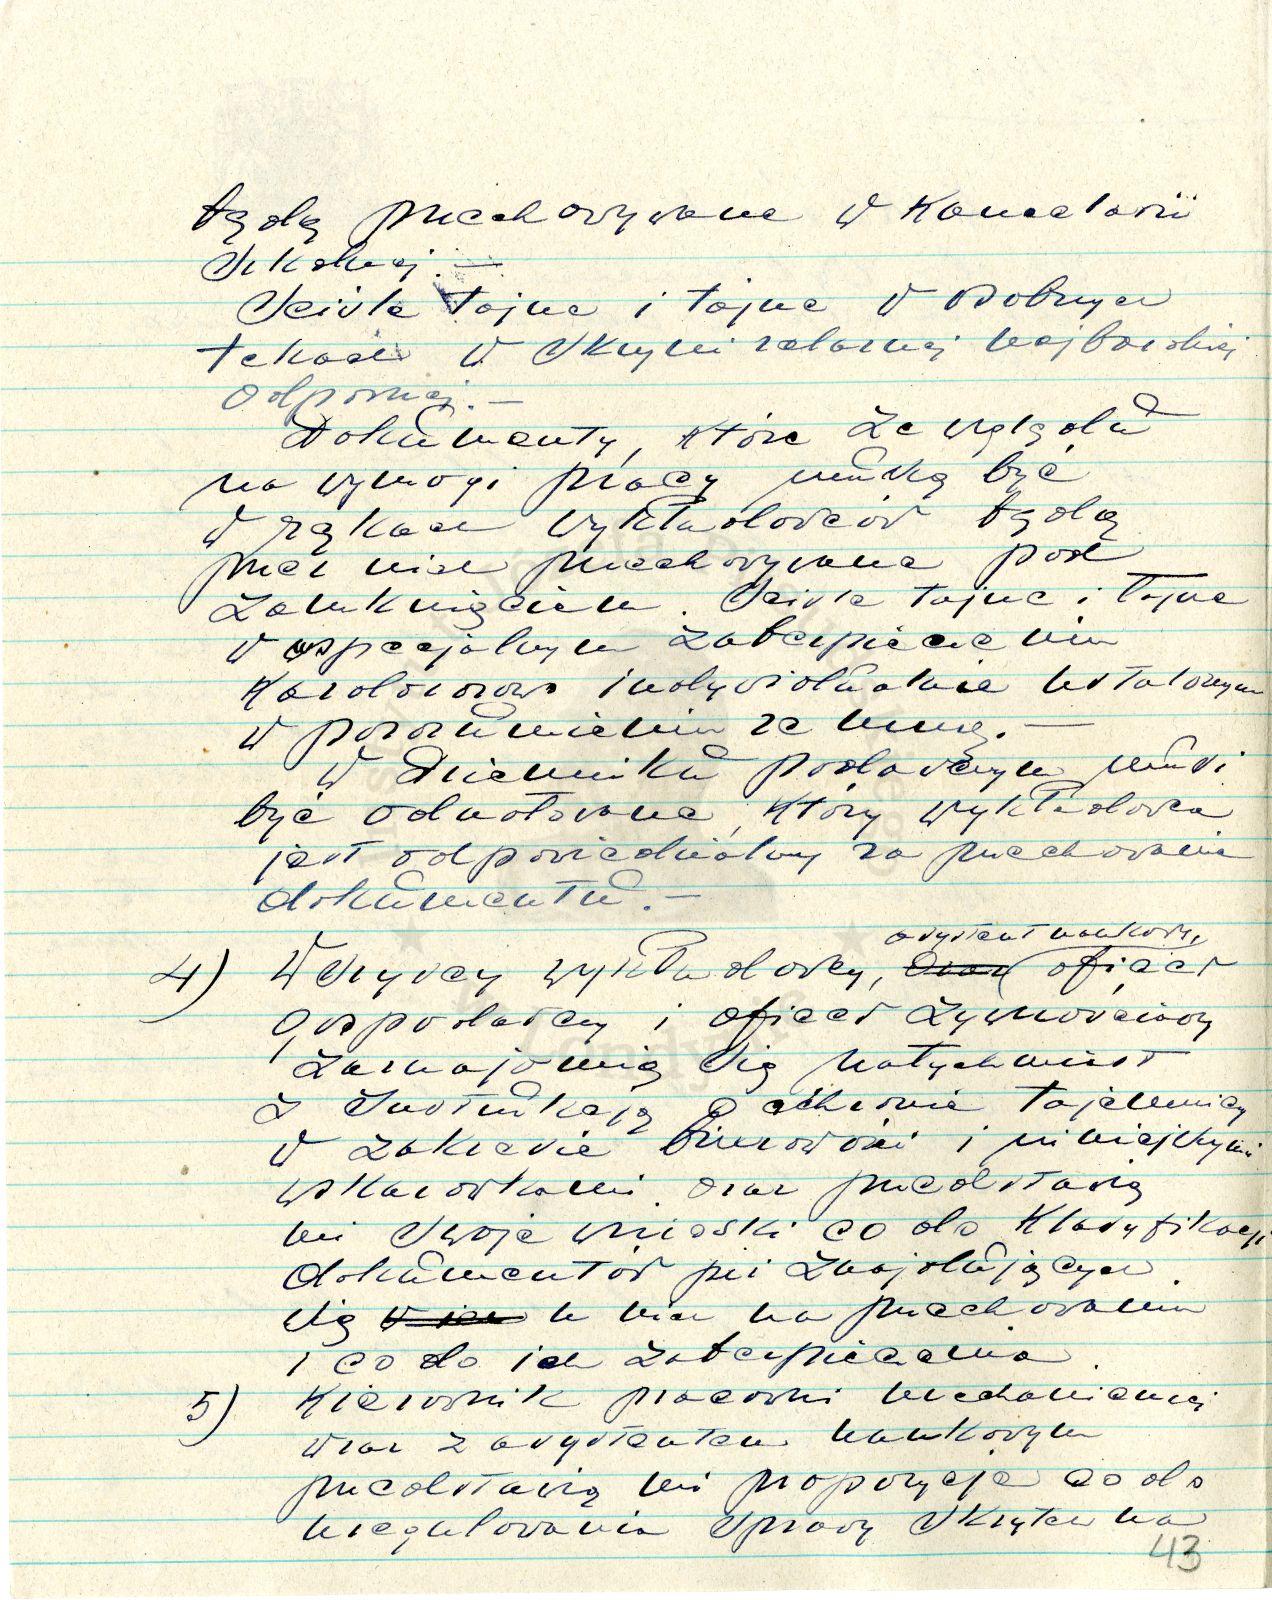 będą przechowywane w Kancelarii
Szkolnej. —
Ściśle tajne i tajne w osobnych
tekach w skrzyni żelaznej najbardziej
odpornej. —
Dokumenty, które ze względu
na wymogi pracy muszą być
w rękach wykładowców będą
przez nich przechowywane pod
zamknięciem. Ściśle tajne i tajne
w specjalnym zabezpieczeniu
każdorazowo indywidualnie ustalonym
w porozumieniu ze mną. —
W Dzienniku podawczym musi
być odnotowane, który wykładowca
jest odpowiedzialny za przechowanie
dokumentu. —
asystent naukowy,
4) Wszyscy wykładowcy, oraz oficer
gospodarczy i oficer żywnościowy
zaznajomią się natychmiast
z Instrukcją o ochronie tajemnicy
w zakresie biurowości i niniejszymi
wskazówkami oraz przedstawią
mi swoje wnioski co do klasyfikacji
dokumentów znajdujących
się u nich na przechowaniu
i co do ich zabezpieczenia.
5) Kierownik pracowni mechanicznej
wraz z asystentem naukowym
przedstawią mi propozycje co do
uregulowania sprawy skrytek na
43